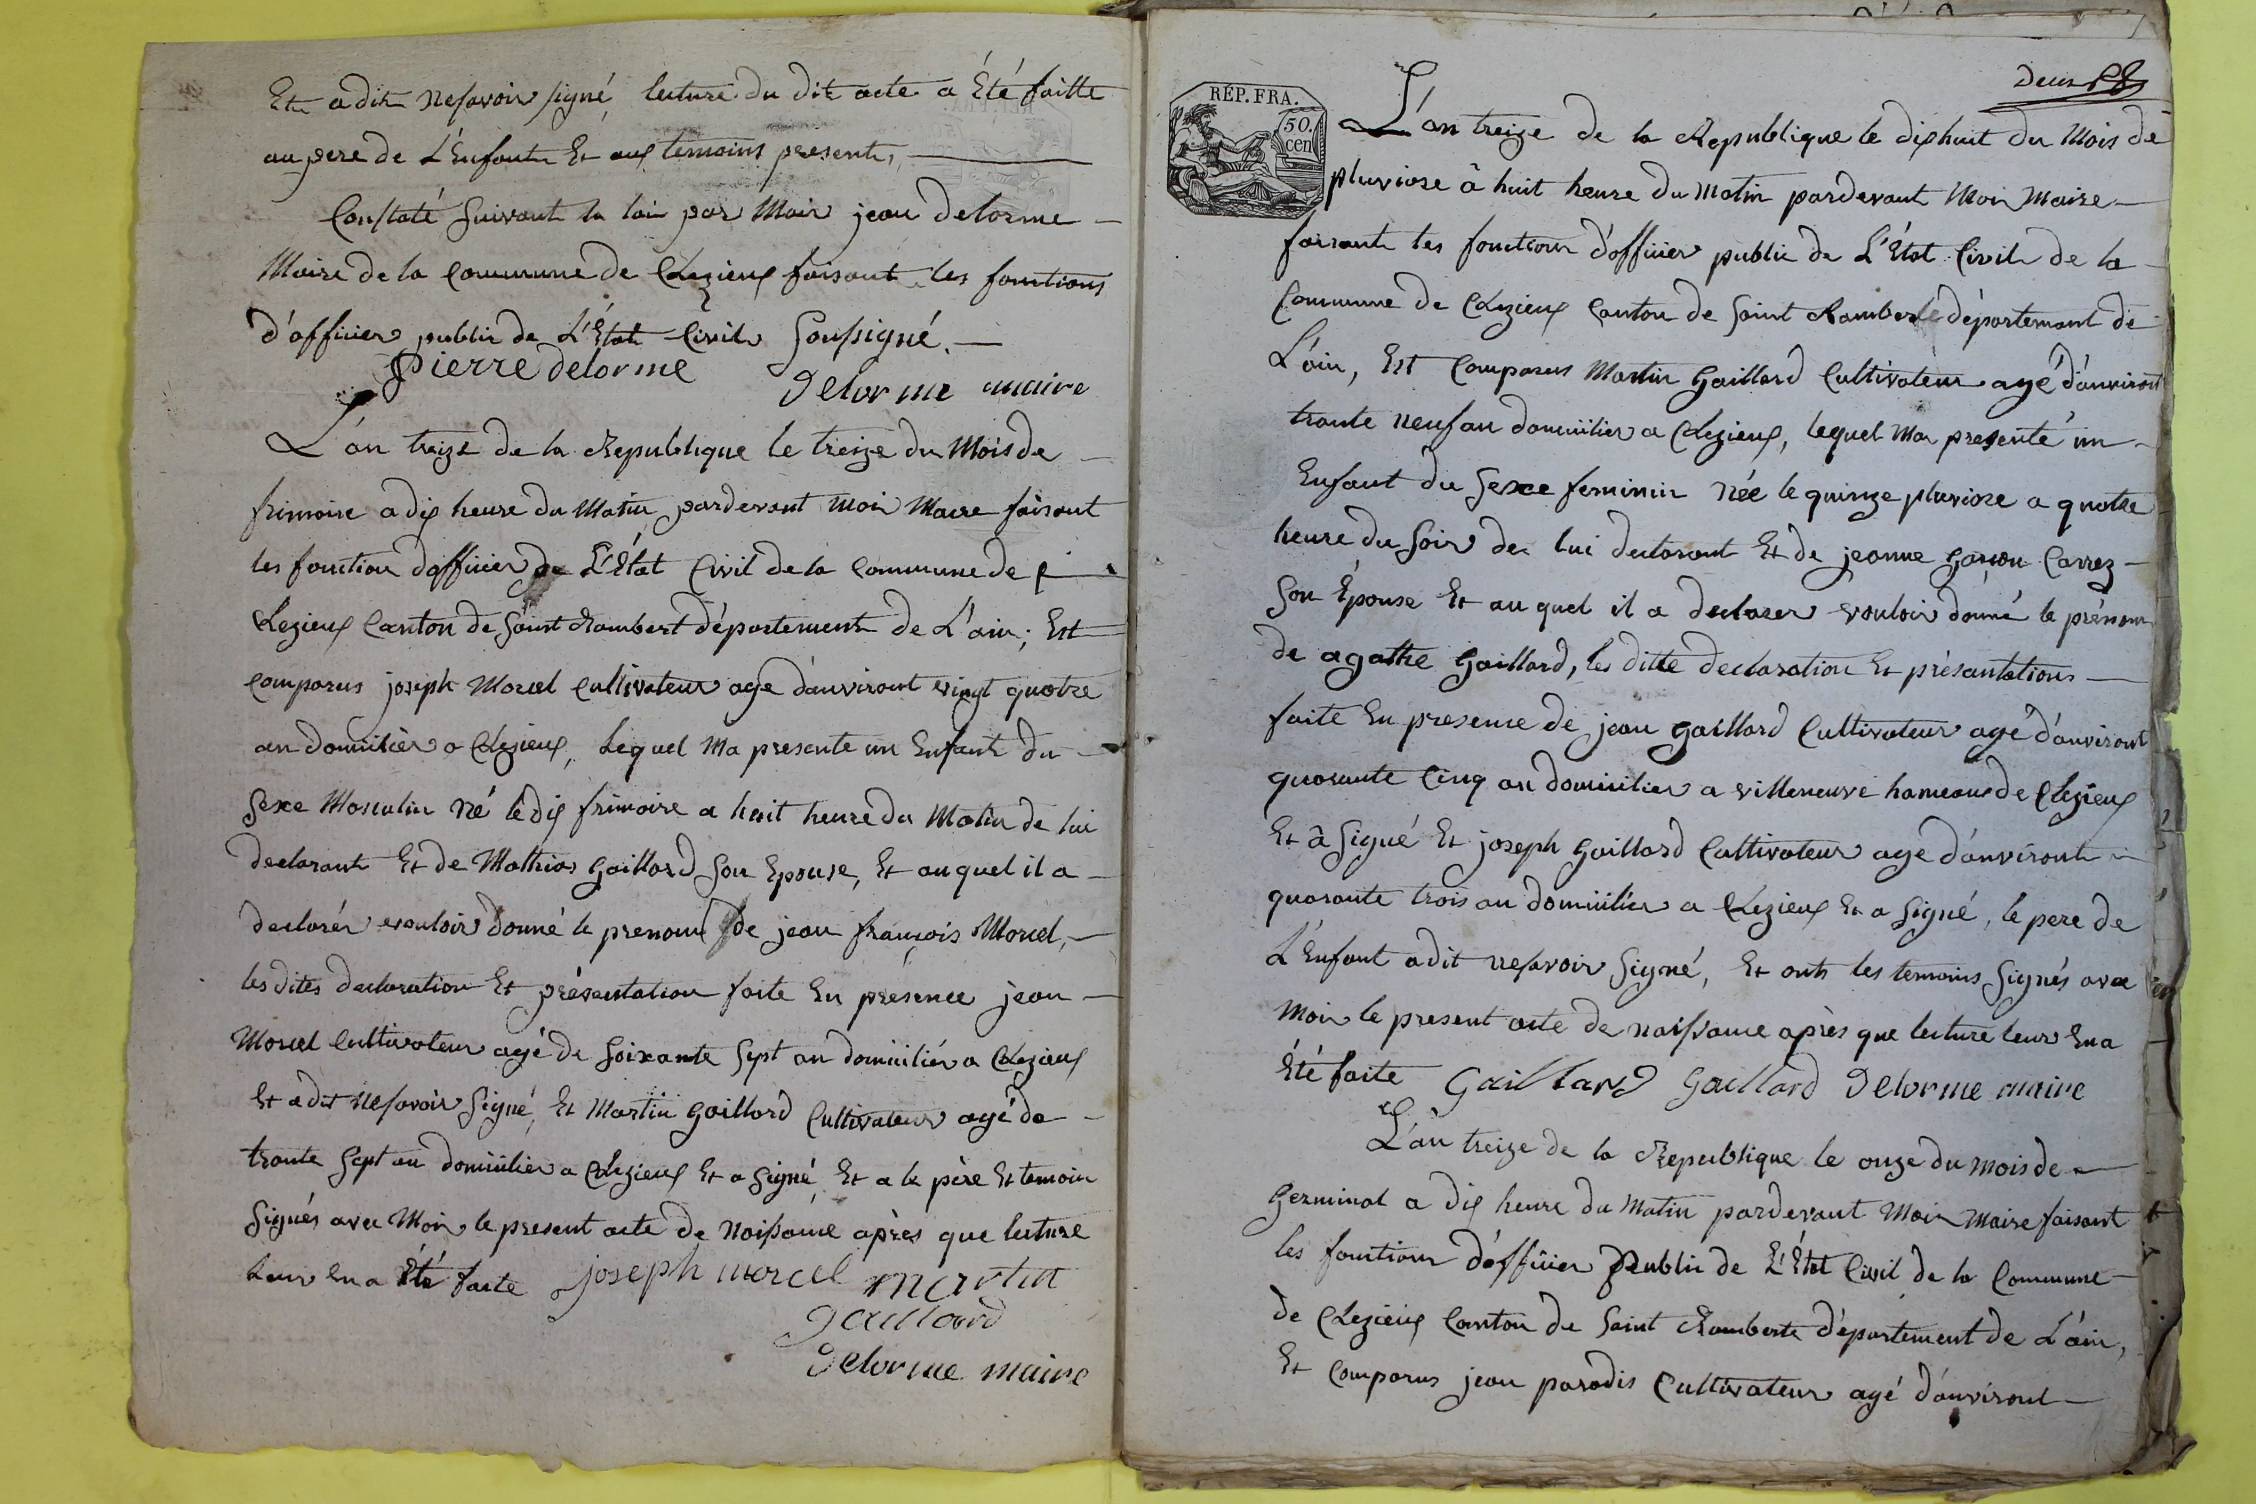 Et a dit ne savoir signé, lecture du dit acte a Été faitte
au pere de L'Enfant Et aux temoins presents,
Constaté suivant la loi par Moi jean delorme
Maire de la Commune de Clezieux faisant les fonctions
d'officier public de L'État Civil Soussigné.
Pierre delorme
delorme maire
L'an treize de la Republique le treize du Mois de
frimaire a dix heure du Matin pardevant Moi Maire faisant
les fonction dofficier de L'État Civil de la Commune de
Clezieux Canton de Saint Rambert département de L'ain; Est
comparus joseph Morcel Cultivateur age d'anviront vingt quatre
an domiciliér a Clezieux, Lequel Ma presente un Enfant du
Sexe Masculin Né le dix frimaire a huit heure du Matin de lui
declarant Et de Mathias Gaillard Son Epouse, Et auquel il a
declarér vouloir donné le prenom de jean françois Morcel,
les dites declaration Et présentation faite En présence jean
Morcel Cultivateur agé de Soixante Sept an domiciliér a Clezieux
Et a dit ne savoir Signé, Et Martin Gaillard Cultivateur agé de
trante Sept an domicilier a Clezieux Et a Signé, Et a le père Et temoin
Signés avec Moi le present acte de Naissance après que lecture
Leur En a Été faite joseph morcel martin
gaillard
delorme maire
Deux
RÉP. FRA.
50.
cen
L'an treize de la Republique le dixhuit du Mois de
pluviose â huit heure du Matin pardevant Moi Maire
faisant les fonctions d'officier public de L'État Civil de la
Commune de Clezieux Canton de Saint Rambert département de
L'ain, Est Comparus Martin Gaillard Cultivateur agé d'anviront
trante neuf an domicilier a Clezieux, lequel Ma presenté un
Enfant du Sexe feminin Née le quinze pluviose a quatre
heure du Soir de lui declarant Et de jeanne Garçon Carrez
Son Épouse Et au quel il a declarer vouloir donné le prénom
de agathe Gaillard, les ditte declaration Et présantations
faite En presence de jean gaillard Cultivateur agé d'anviront
quarante Cinq an domicilier a villeneuve hameau de Clezieux
Et â Signé Et joseph Gaillard Cultivateur age d'anviront
quarante trois an domicilier a Clezieux Et a Signé, le pere de
L'Enfant a dit ne savoir Signé, Et onts les temoins Signés avec
Moi le present acte de naissance après que lecture leur En a
Été faite Gaillard Gaillard delorme maire
L'an treize de la Republique le onze du mois de
Germinal a dix heure du Matin pardevant Moi Maire faisant
les fonctions d'officier Public de L'État Civil de la Commune
de Clezieux Canton de Saint Ramberte département de L'ain,
Et Comparus jean paradis Cultivateur agé d'anviront